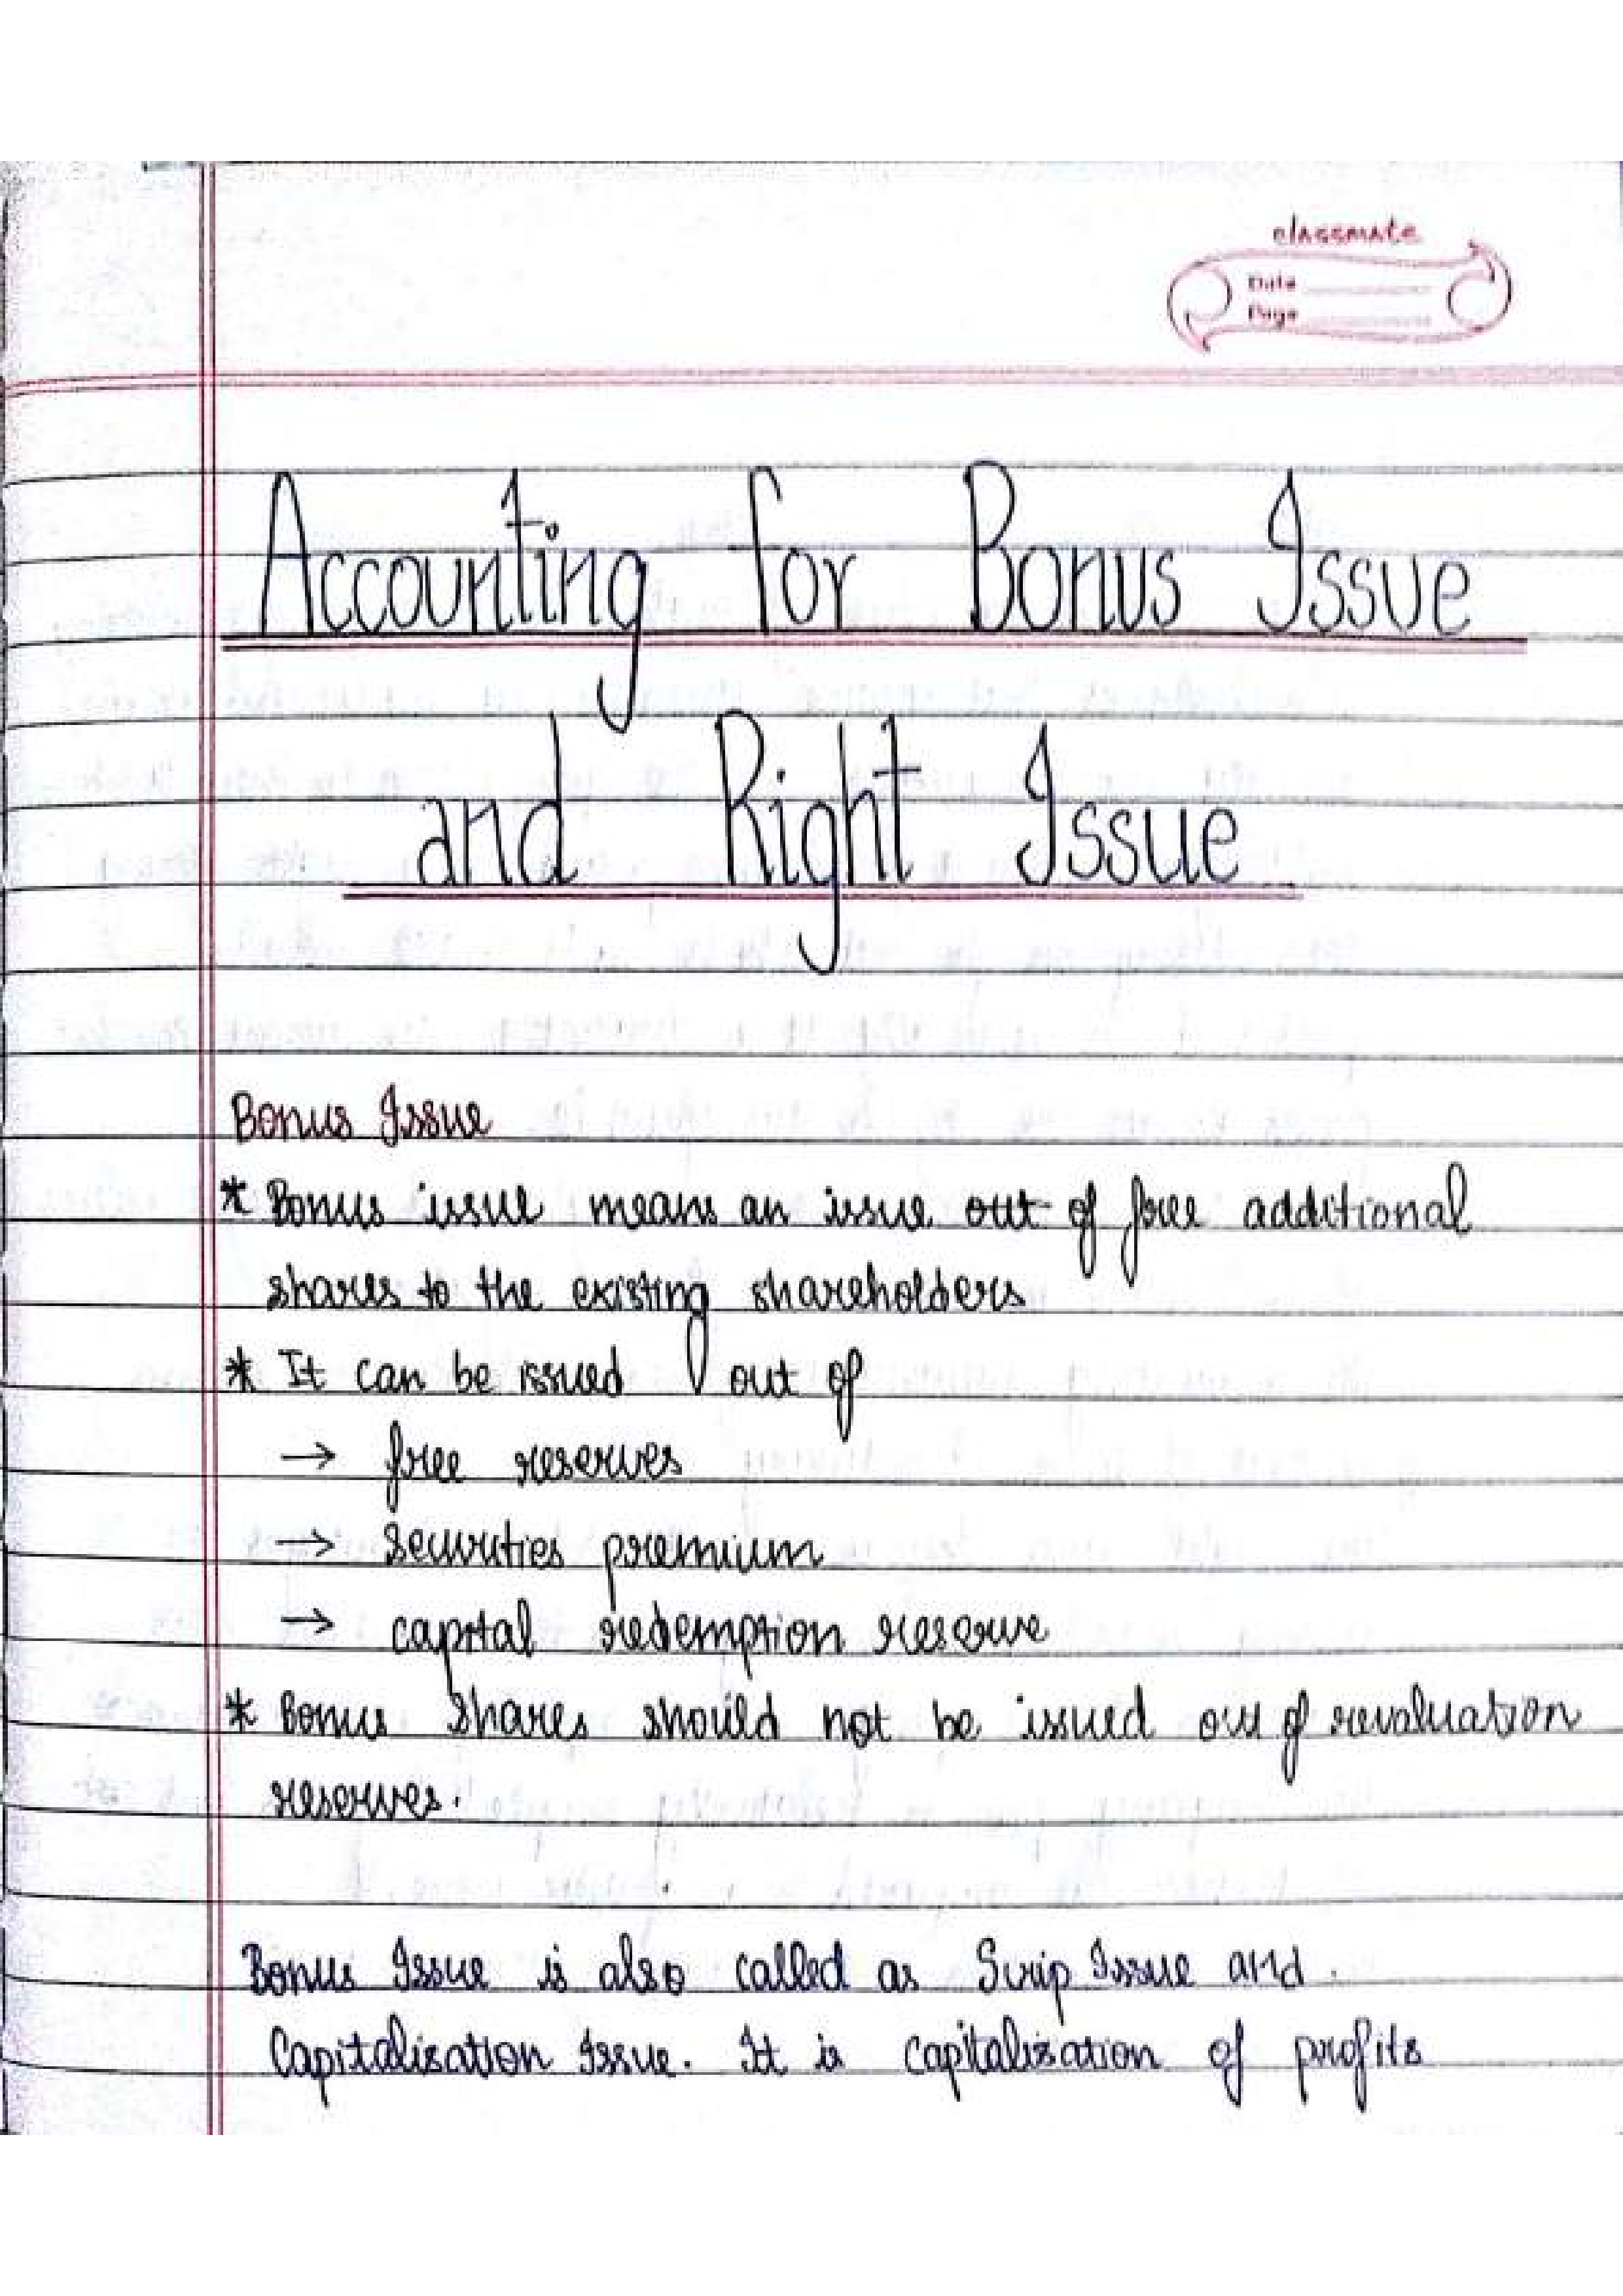 classmate
Date
Page
Accounting for Bonus Issue
and Right Issue
Bonus Issue
* Bonus issue means an issue out of free additional
shares to the existing shareholders
* It can be issued out of
→ free reserves
→ securities premium
→ capital redemption reserve
* Bonus shares should not be issued out of revaluation
reserves.
Bonus Issue is also called as Scrip Issue and
Capitalisation Issue. It is capitalisation of profits